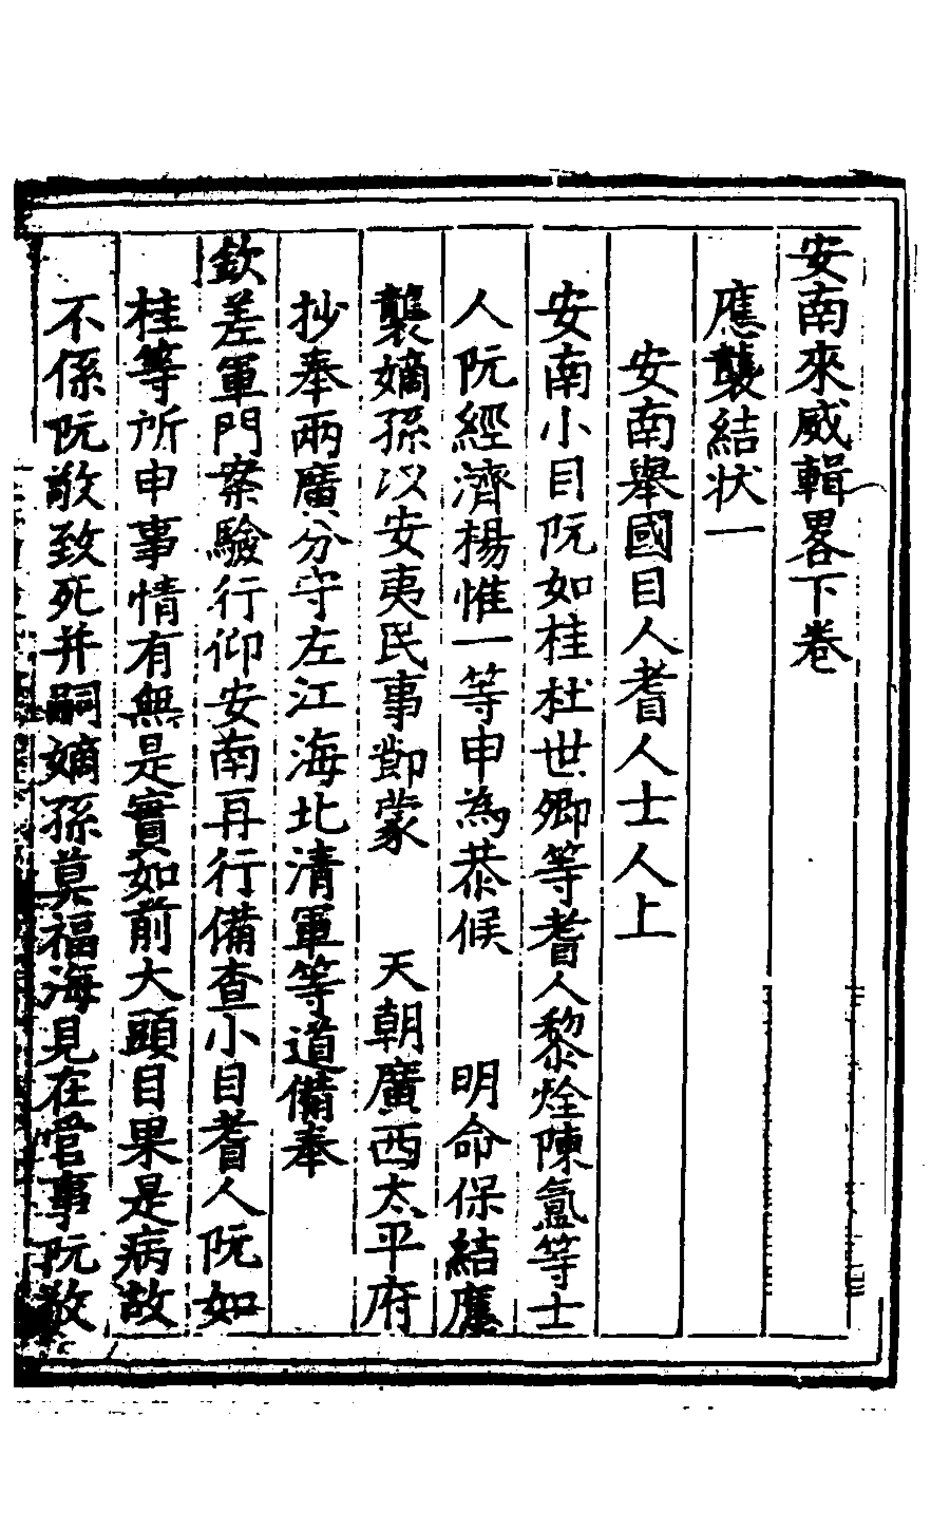 安南來威輯畧下卷
應襲結状一
安南舉國目人耆人士人上
安南小目阮如桂杜世卿等耆人黎烇陳氳等士
人阮經濟楊惟一等申為恭候　明命保結應
襲嫡孫以安夷民事節蒙　天朝廣西太平府
抄奉兩廣分守左江海北清軍等道備奉
欽差軍門案驗行仰安南再行備查小目耆人阮如
桂等所申事情有無是實如前大頭目果是病故
不係阮敬致死并嗣嫡孫莫福海見在官事阮敬